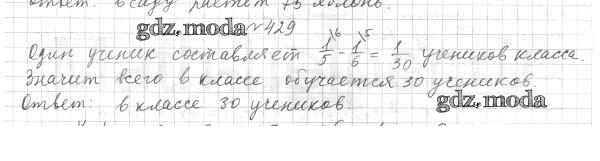 Ответ: в саду растет 75 яблонь.
gdz.moda №429
Один ученик составляет 1/5\6 - 1/6\5 = 1/30 учеников класса.
Значит всего в классе обучается 30 учеников.
Ответ: в классе 30 учеников
gdz.moda